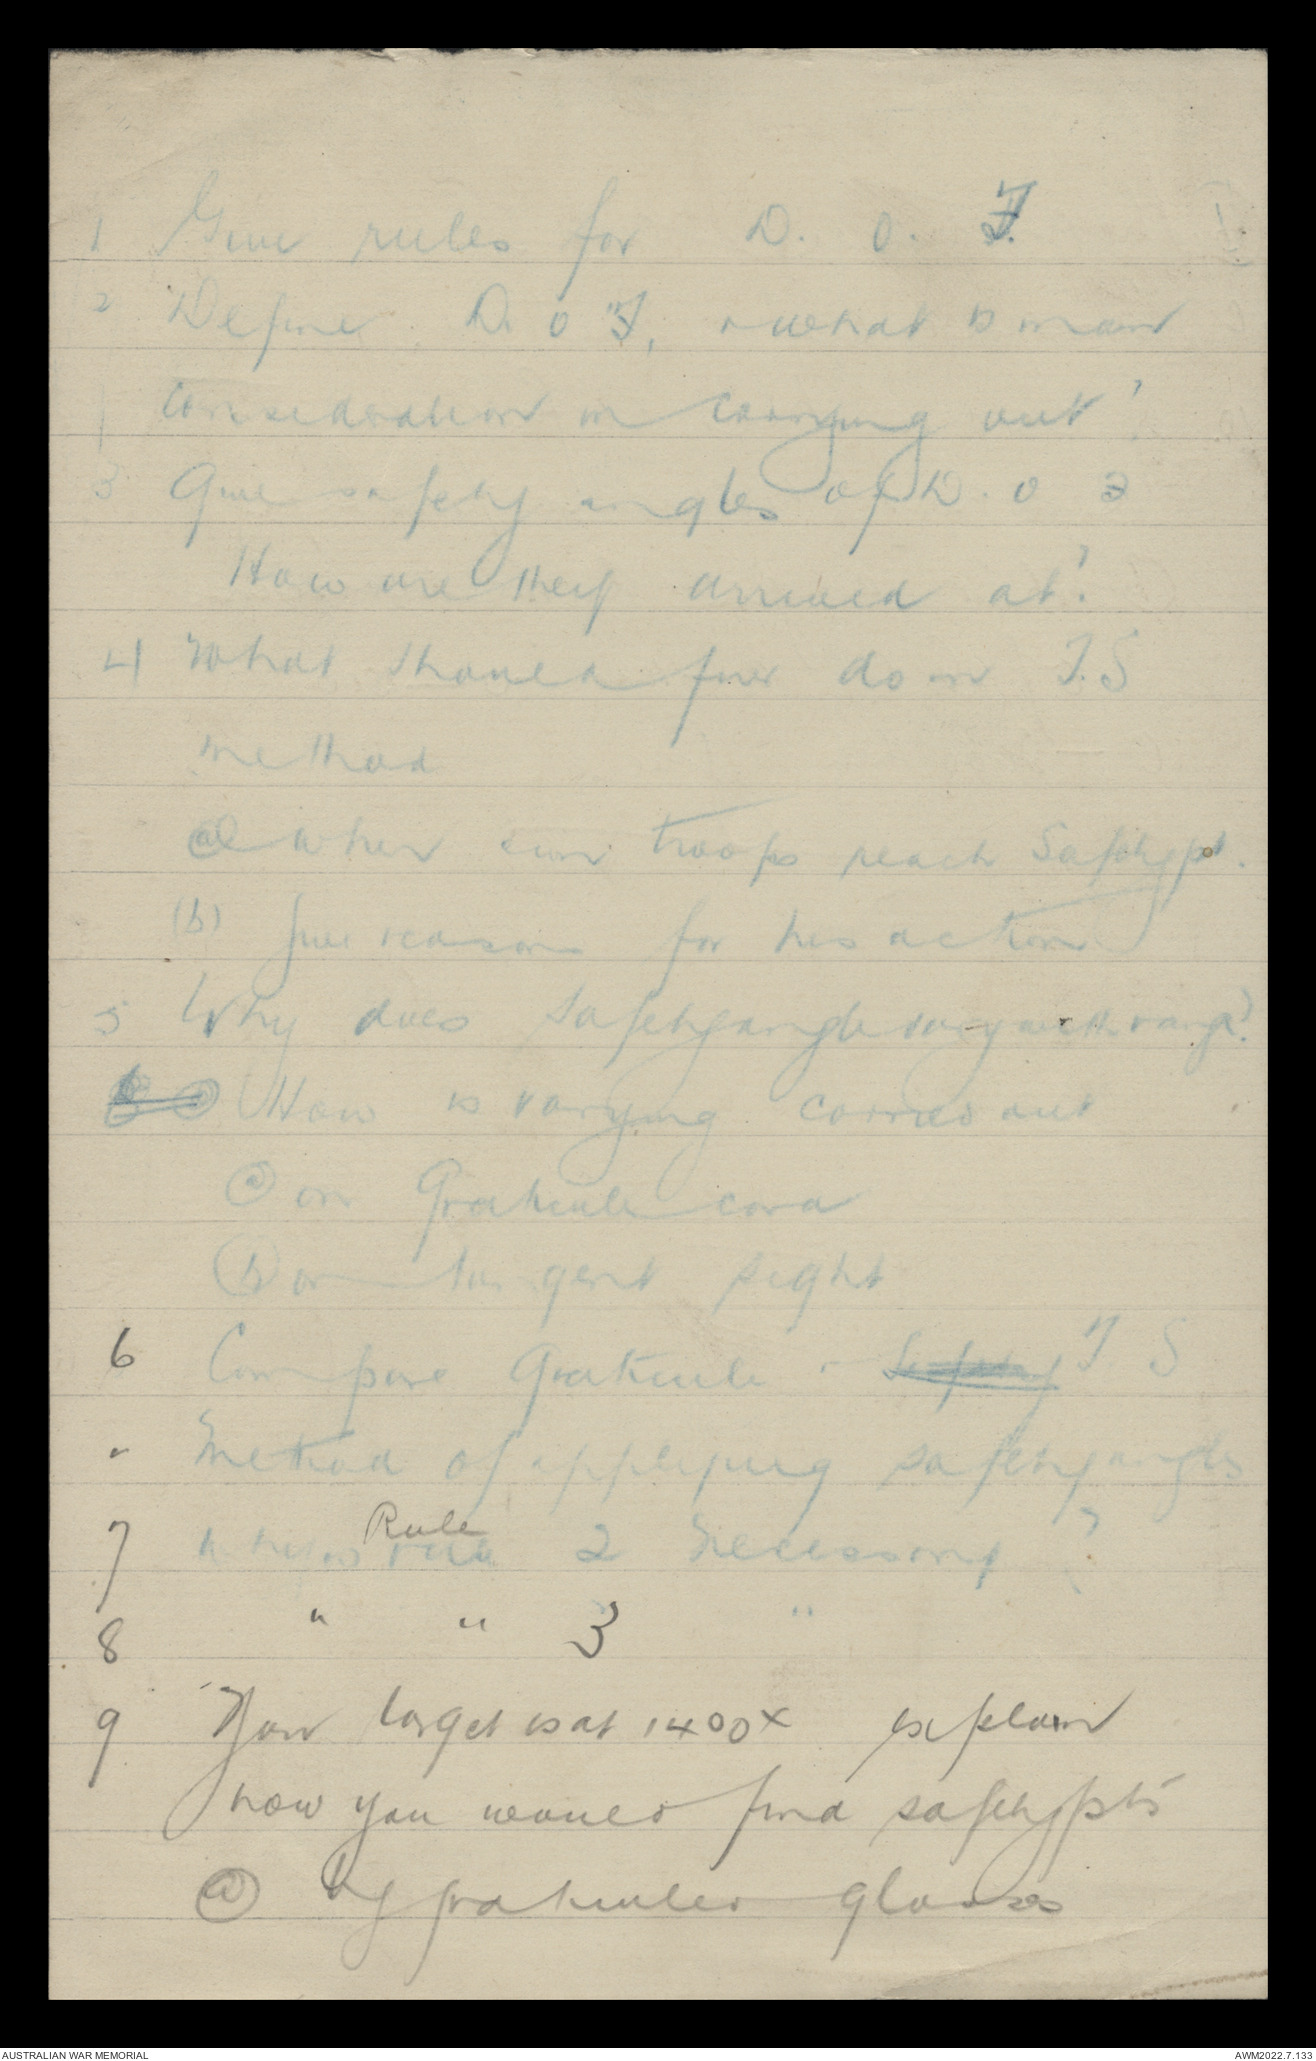 1 Give rules for D. O. F.
2 Define D. O F, & what is main
consideration in carrying out?
3 Give safety angles of D. O F
How are they arrived at?
4 What should firer do in T. S
method
(a) when own troops reach Safety pt.
(b) give reasons for his action
5 Why does safety angle vary with range?
How is varying carried out
(a) on Graticule card
(b) on tangent sight
6 Compare Graticule & T S
" Method of applying safety angles
7 Why is Rule 2 Necessary?
8 " " 3 "
9 Your target is at 1400x explain
how you would find safety pts
(a) by graticuled glasses
AUSTRALIAN WAR MEMORIAL
AWM2022.7.133